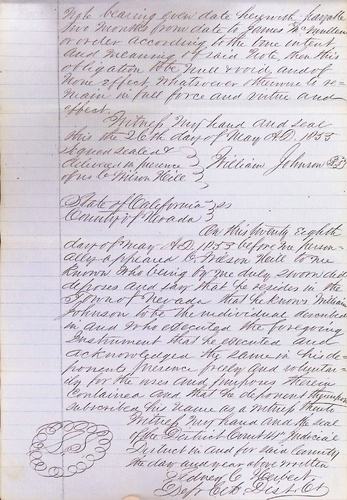 Note bearing even date herewith payable
two months from date to James McMullen
or order according to the true intent
and meaning of said Note then this
obligation to be null & void and of
none effect Whatsoever otherwise to re-
main in full force and virtue and
effect.
Witness my hand and seal
this the 26th day of May A.D. 1853
Signed sealed &
delivered in presence
of us
William Johnson
State of California } ss
County of Nevada
On this twenty Eighth
day of May A.D. 1853 before me Person-
ally appeared C. Wilson Hill to me
known who being by me duly sworn did
depose and say that he resides in the
Town of Nevada that he knows William
Johnson to be the individual described
in and who executed the foregoing
Instrument that he executed and
acknowledged the same in his de-
ponents presence freely and voluntar-
ily for the uses and purposes therein
contained and that he deponent thereupon
subscribed his name as a witness thereto
Witness my hand and the seal
of the District Court 4th Judicial
District in and for said County
the day and year above written
C. Herbert
Dep. Clk Dist. Ct